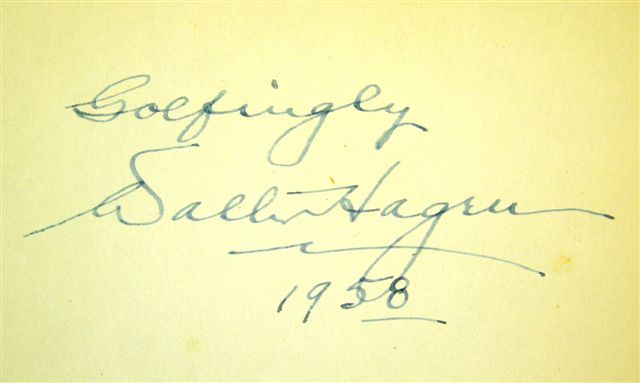 Golfingly
Walter Hagen
1958